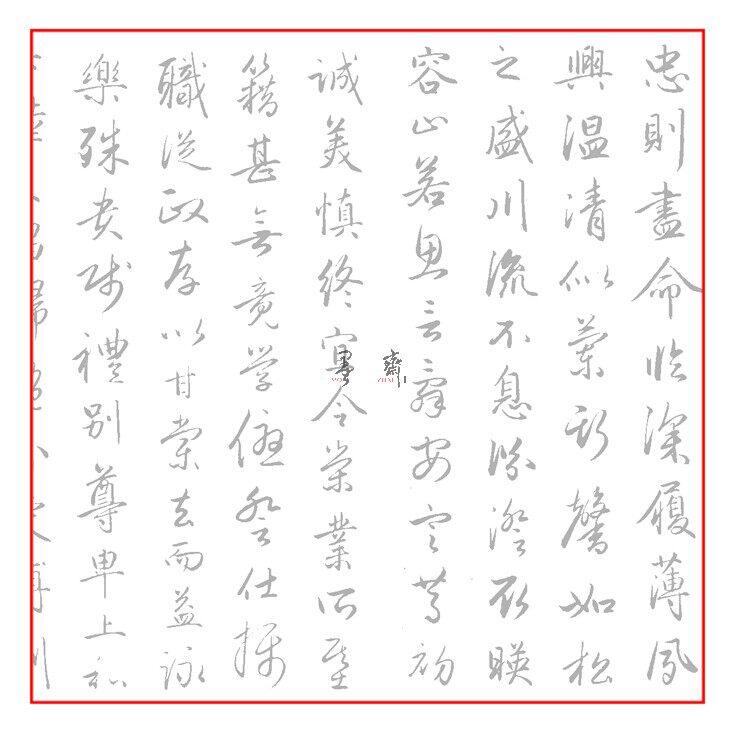 忠則盡命临深履薄夙
興温清似蘭斯馨如松
之盛川流不息淵澄取暎
容止若思言辭安定篤初
誠美慎終宜令榮業所基
籍甚無竟學優登仕攝
職從政存以甘棠去而益詠
樂殊貴賤禮別尊卑上和